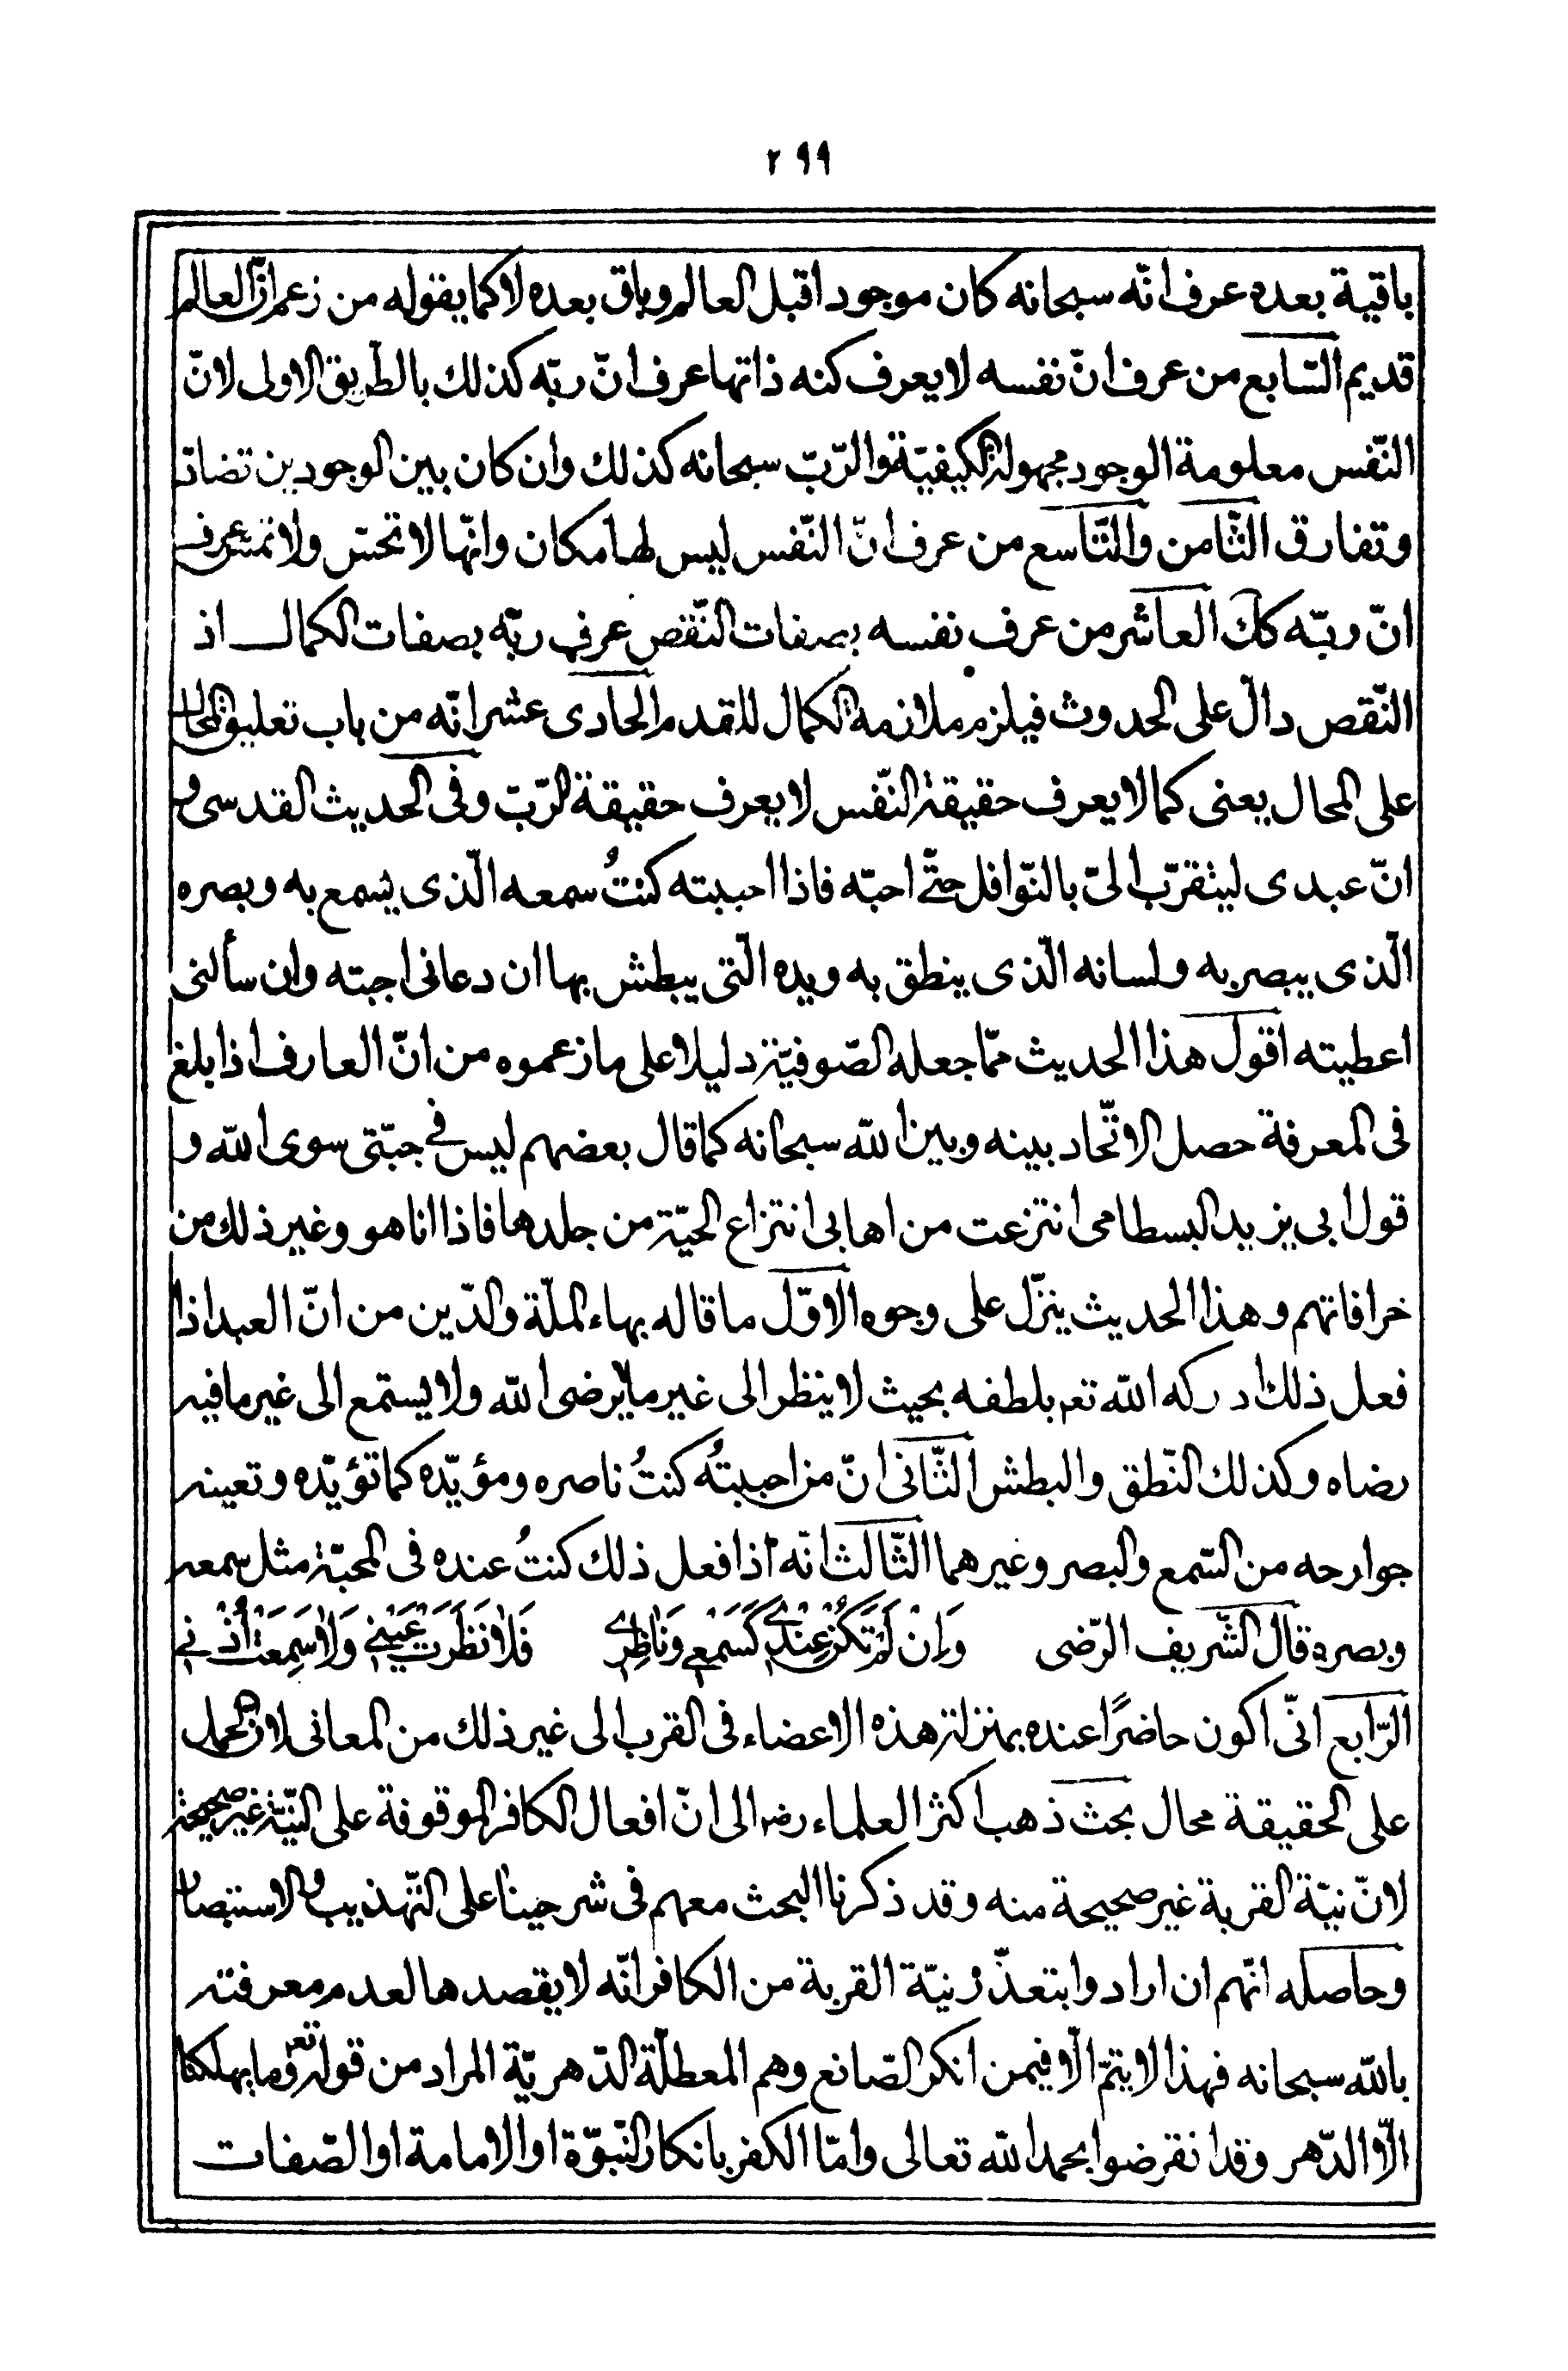 ٢٩٩
باقية بعده عرف انّه سبحانه كان موجودا قبل العالم وباق بعده لا كما يقوله من زعم انّ العالم
قديم السّابع من عرف انّ نفسه لا يعرف كنه ذاتها عرف انّ ربّه كذلك بالطّريق الاولى لانّ
النّفس معلومة الوجود مجهولة الكيفيّة والرّبّ سبحانه كذلك وان كان بين الوجودين تضادّ
وتفارق الثّامن والتّاسع من عرف انّ النّفس ليس لها مكان وانّها لا تحسّ ولا تمسّ عرف
انّ ربّه كك العاشر من عرف نفسه بصفات النّقص عرف ربّه بصفات الكمال اذ
النّقص دالّ على الحدوث فيلزم ملازمة الكمال للقدم الحادى عشر انّه من باب تعليق المحال
على المحال يعنى كما لا يعرف حقيقة النّفس لا يعرف حقيقة الرّبّ وفى الحديث القدسى و
انّ عبدى ليتقرّب الىّ بالنّوافل حتّى احبّه فاذا احببته كنتُ سمعه الّذى يسمع به وبصره
الّذى يبصر به ولسانه الّذى ينطق به ويده الّتى يبطش بها ان دعانى اجبته وان سألنى
اعطيته اقول هذا الحديث ممّا جعله الصّوفيّة دليلا على ما زعموه من انّ العارف اذا بلغ
فى المعرفة حصل الاتّحاد بينه وبين الله سبحانه كما قال بعضهم ليس فى جبّتى سوى الله و
قول ابى يزيد البسطامى انتزعت من اهابى انتزاع الحيّة من جلدها فاذا انا هو وغير ذلك من
خرافاتهم وهذا الحديث ينزّل على وجوه الاوّل ما قاله بهاء الملّة والدّين من انّ العبد اذا
فعل ذلك ادركه الله تعه بلطفه بحيث لا ينظر الى غير ما يرضى الله ولا يستمع الى غير ما فيه
رضاه وكذلك النّطق والبطش الثّانى انّ من احببتُه كنتُ ناصره ومؤيّده كما تؤيّده وتعينه
جوارحه من السّمع والبصر وغيرهما الثّالث انّه اذا فعل ذلك كنتُ عنده فى المحبّة مثل سمعه
وبصره قال الشّريف الرّضى وَاِنْ لَمْ تَكُنْ عِنْدِي كَسَمْعِي وَنَاظِرِي فَلَا نَظَرَتْ عَيْنِي وَلَا سَمِعَتْ اُذْنِي
الرّابع انّى اكون حاضرًا عنده بمنزلة هذه الاعضاء فى القرب الى غير ذلك من المعانى لانّ الحمل
على الحقيقة محال بحث ذهب اكثر العلماء رضه الى انّ افعال الكافر الموقوفة على النّيّة غير صحيحة
لانّ نيّة القربة غير صحيحة منه وقد ذكرنا البحث معهم فى شرحينا على التّهذيب والاستبصار
وحاصله انّهم ان ارادوا بتعذّر نيّة القربة من الكافر انّه لا يقصدها لعدم معرفته
بالله سبحانه فهذا لا يتمّ الّا فيمن انكر الصّانع وهم المعطلّة الدّهريّة المراد من قوله تعه وما يهلكنا
الّا الدّهر وقد انقرضوا بحمد الله تعالى وامّا الكفر بانكار النّبوّة او الامامة او الصّفات